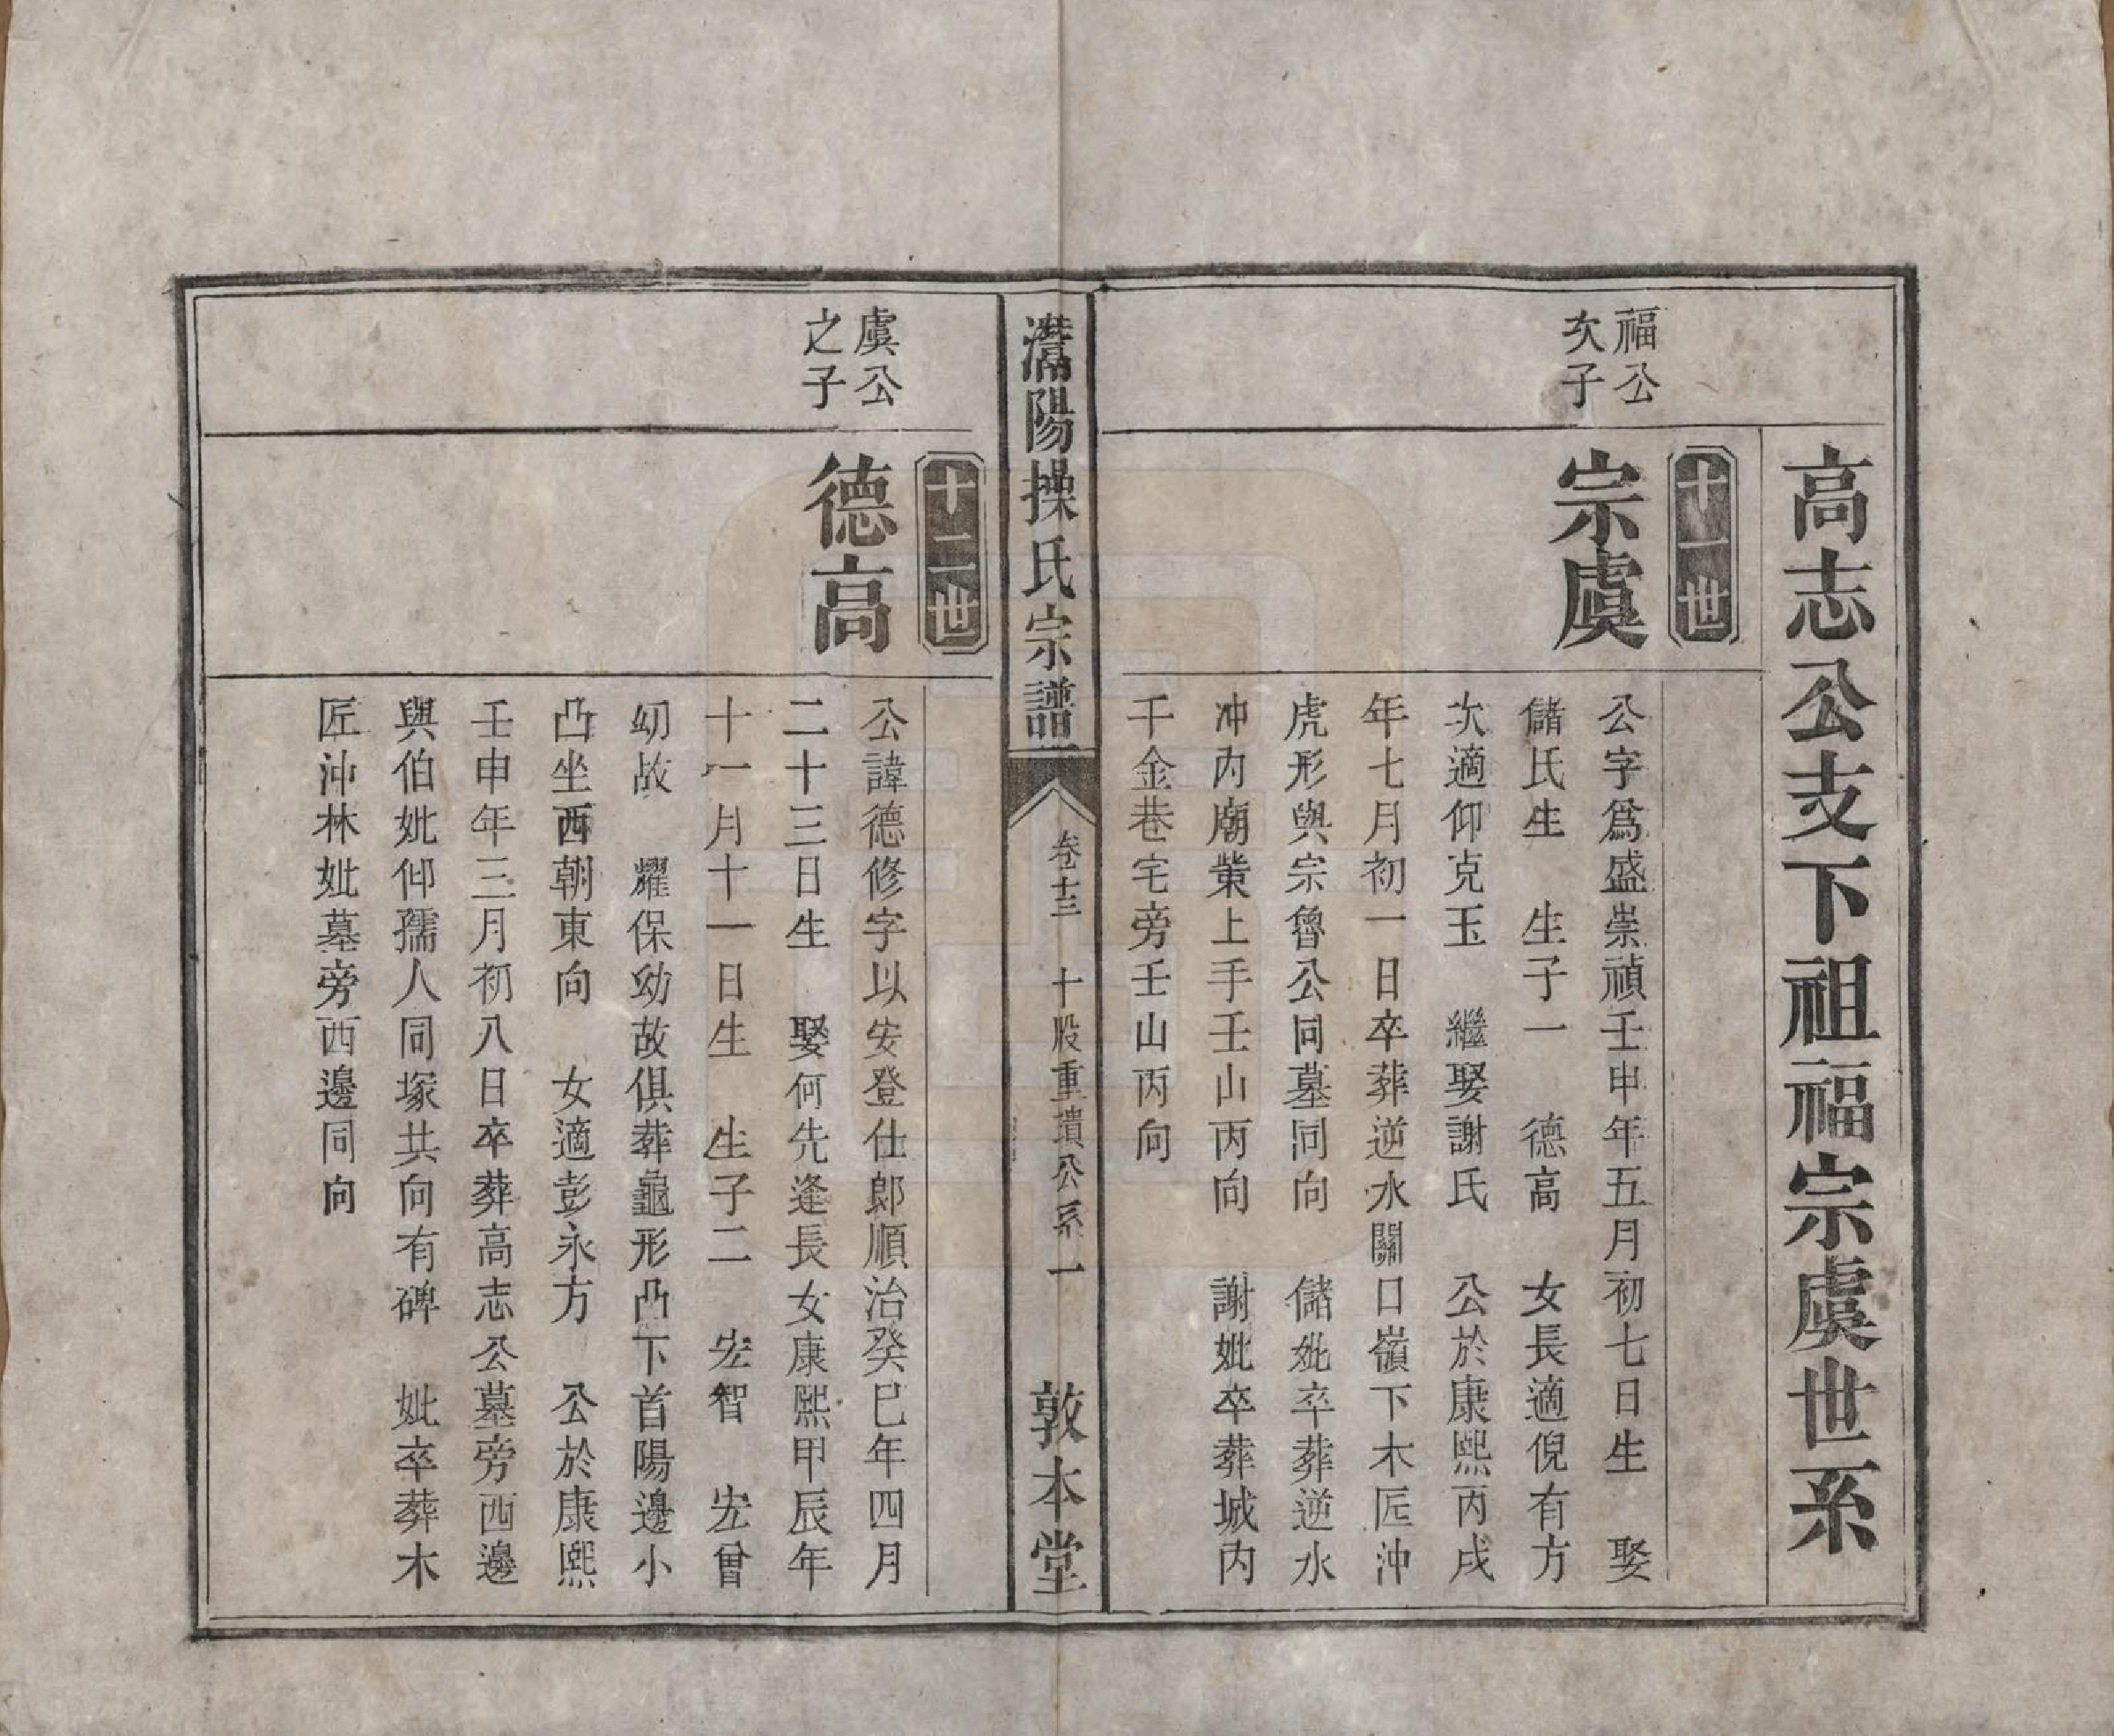 高志公支下祖福宗虞世系
十一世
福公
次子
宗虞
公字爲盛崇禎壬申年五月初七日生　娶
儲氏生　生子一　德高　女長適倪有方
次適仰克玉　繼娶謝氏　公於康熙丙戌
年七月初一日卒葬逆水關口嶺下木匠沖
虎形與宗魯公同墓同向　儲妣卒葬逆水
冲内廟業上手壬山丙向　謝妣卒葬城内
千金巷宅旁壬山丙向
灊陽操氏宗譜
卷十三　十股重璝公系　一
敦本堂
十二世
虞公
之子
德高
公諱德修字以安登仕郎順治癸巳年四月
二十三日生　娶何先逢長女康熙甲辰年
十一月十一日生　生子二　宏智　宏曾
幼故　耀保幼故俱葬龜形凸下首陽邊小
凸坐西朝東向　女適彭永方　公於康熙
壬申年三月初八日卒葬高志公墓旁西邊
與伯妣仰孺人同塚共向有碑　妣卒葬木
匠沖林妣墓旁西邊同向